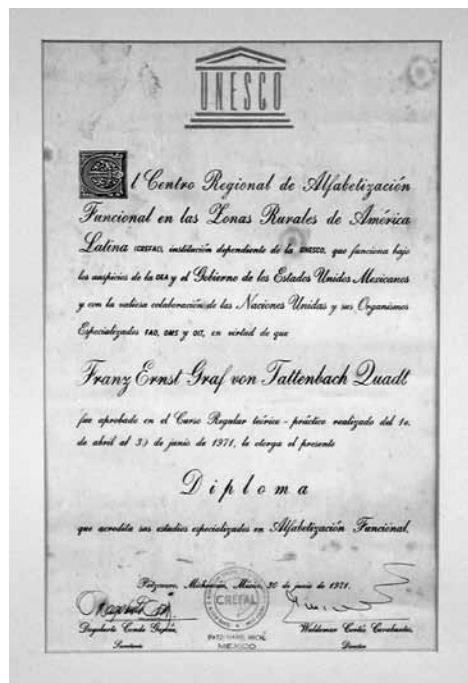 UNESCO
El Centro Regional de Alfabetización
Funcional en las Zonas Rurales de América
Latina (CREFAL), institución dependiente de la UNESCO, que funciona bajo
los auspicios de la OEA y el Gobierno de los Estados Unidos Mexicanos
y con la valiosa colaboración de las Naciones Unidas y sus Organismos
Especializados FAO, OMS y OIT, en virtud de que
Franz Ernst Graf von Tattenbach Quadt
fue aprobado en el Curso Regular teórico-práctico realizado del 1o.
de abril al 30 de junio de 1971, le otorga el presente
Diploma
que acredita sus estudios especializados en Alfabetización Funcional.
Pátzcuaro, Michoacán, México, 30 de junio de 1971.
CREFAL
PATZCUARO, MICH.
MEXICO
Dagoberto Conde
Secretario
Waldemar Cortés Carabantes,
Director